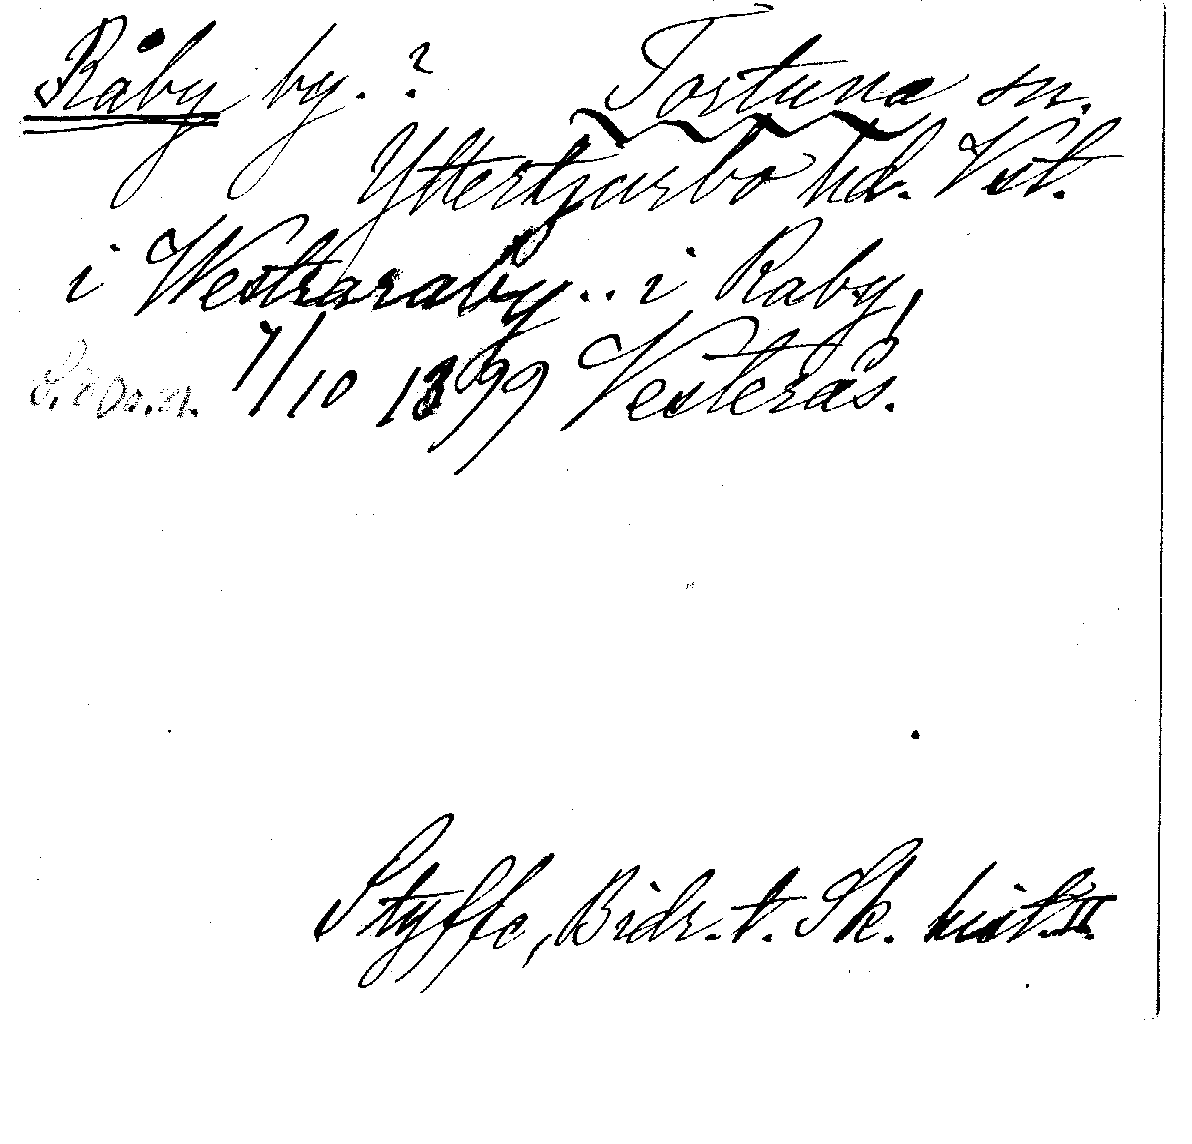 Råby by. ? Tortuna sn.
Yttertjurbo hd. Vst.
i Westraraby .. i Raby,
7/10 1399 Vesterås.
Styffe, Bidr. t. Sk. hist. II.